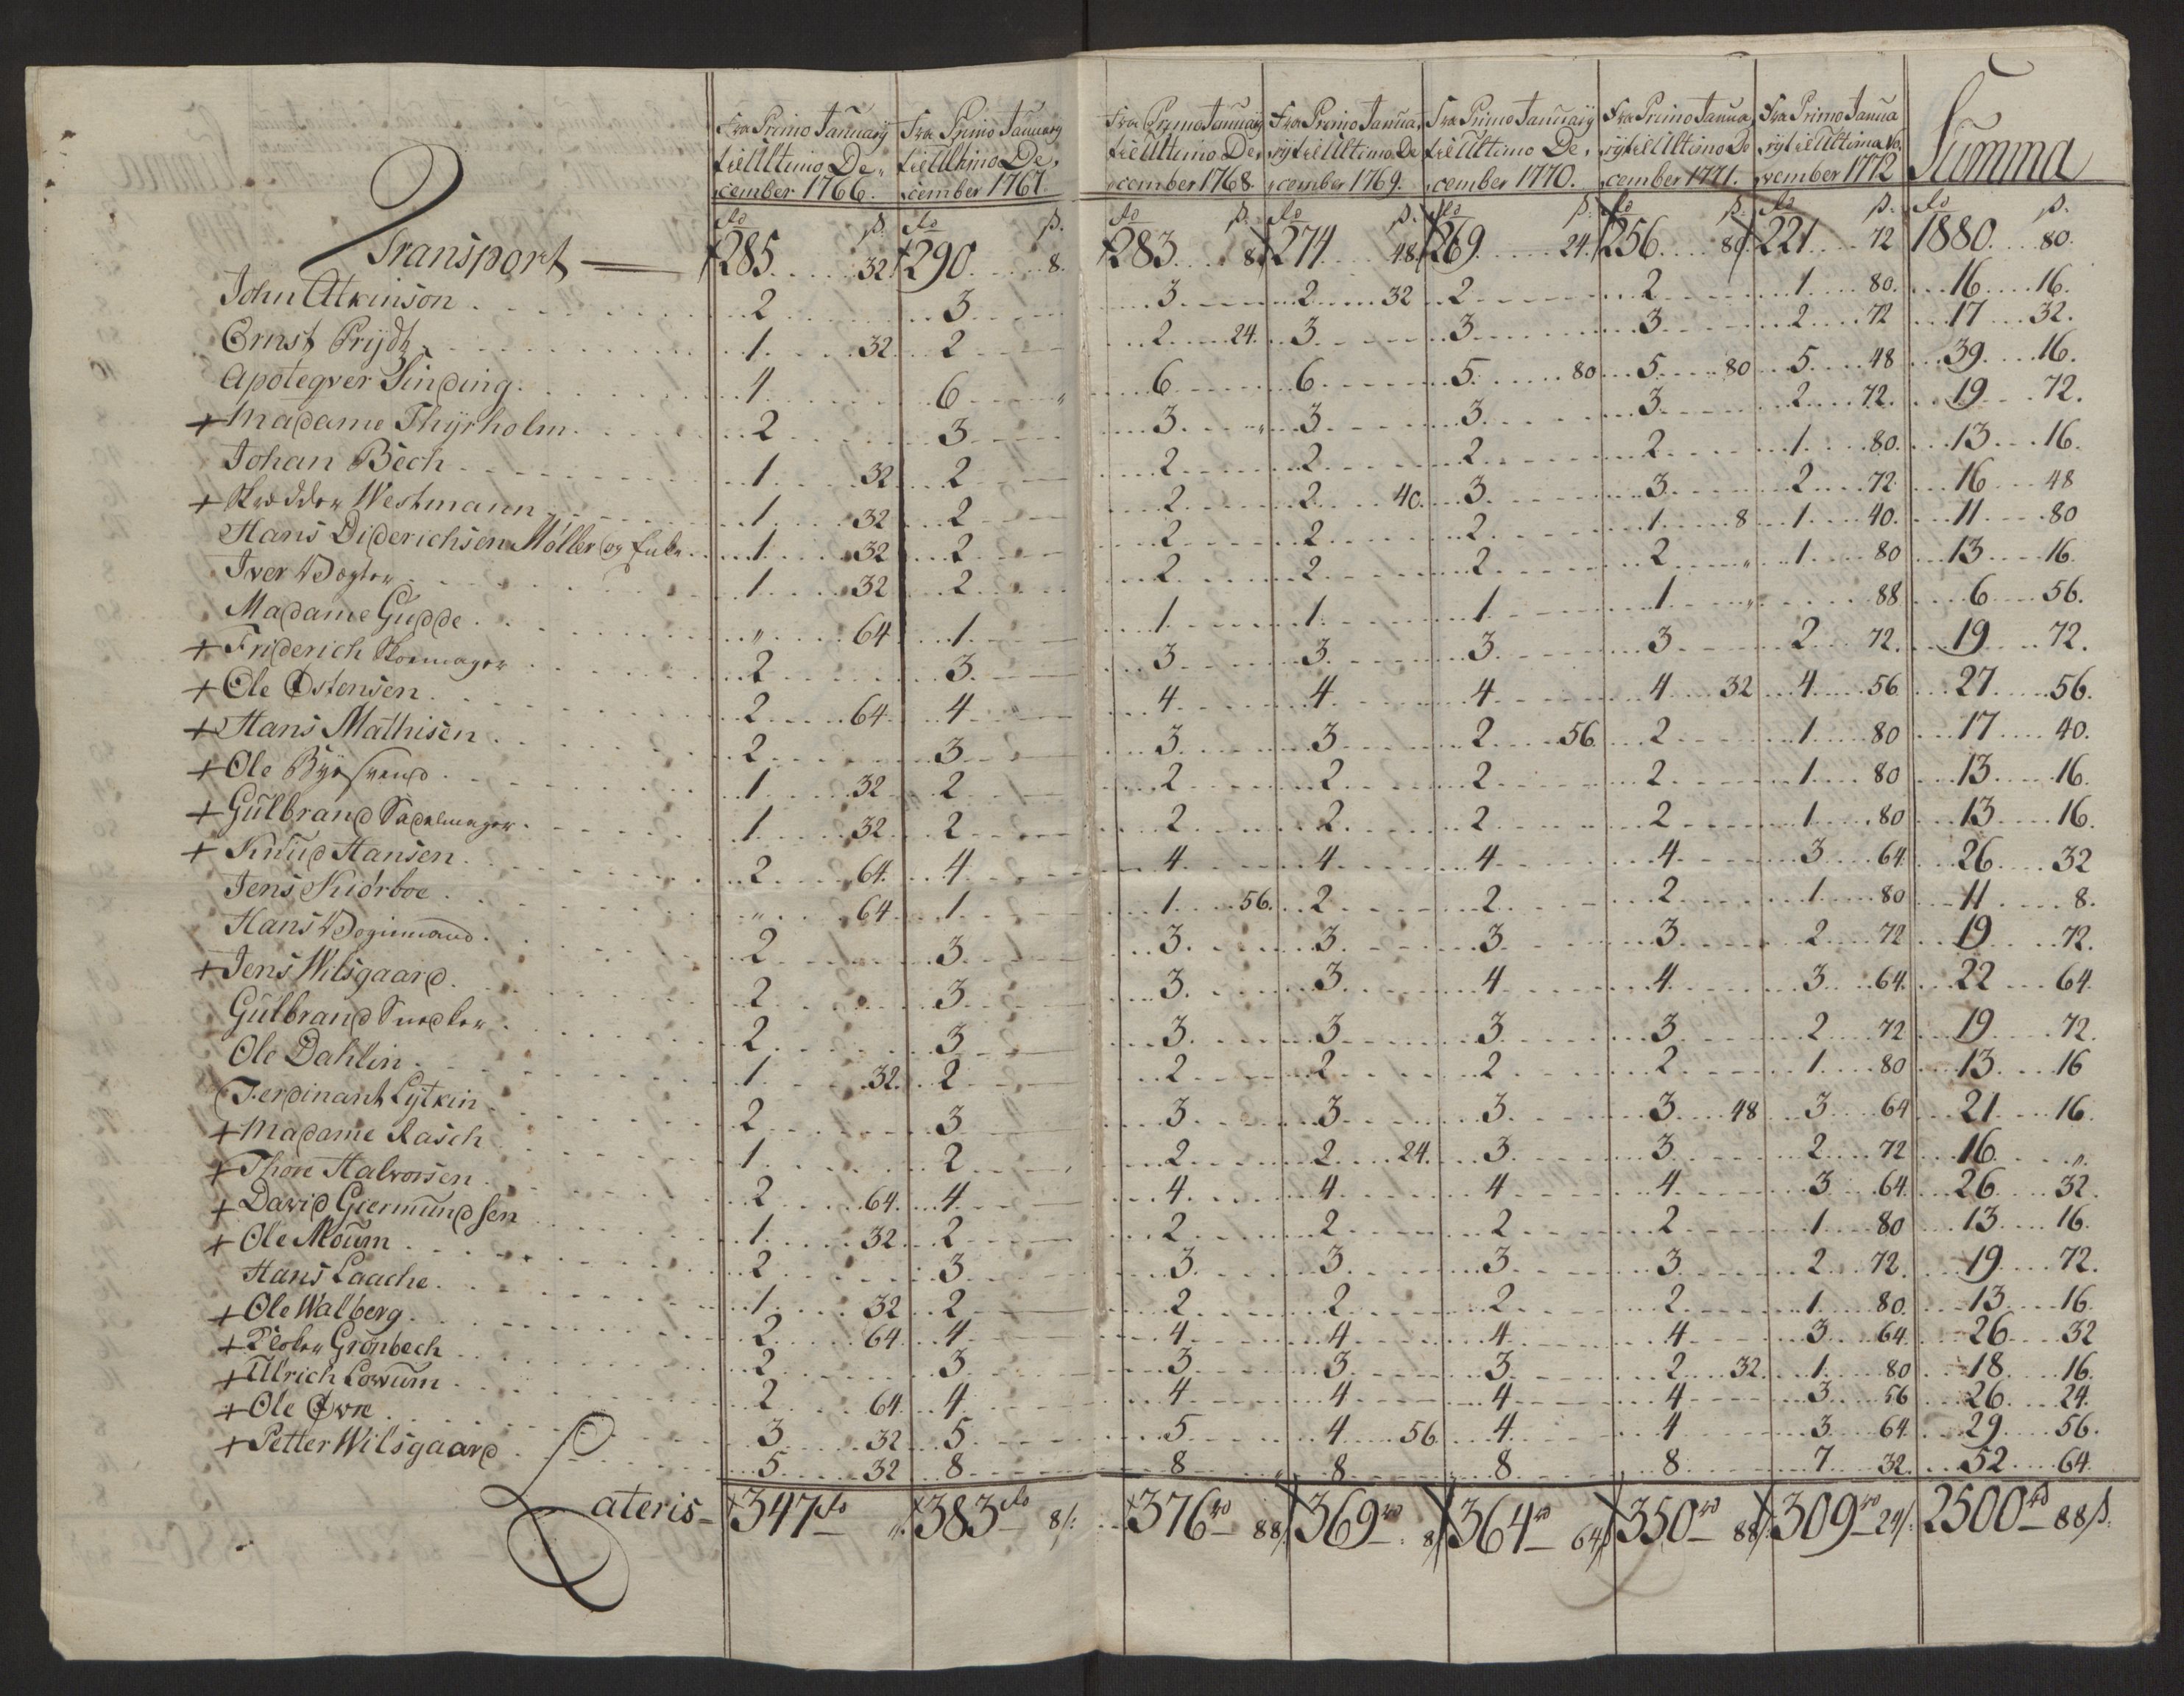 Fra Primo Januarÿ til Ultimo December 1766. | Fra Primo Januarÿ til Ultimo December 1767. | Fra Primo Januarÿ til Ultimo December 1768. | Fra Primo Januarÿ til Ultimo December 1769. | Fra Primo Januarÿ til Ultimo December 1770. | Fra Primo Januarÿ til Ultimo December 1771. | Fra Primo Januarÿ til Ultima November 1772 | Summa
Transport 285 32 | 290 8. | 283 8 | 274 48. | 269 24. | 256 80 | 221 72 | 1880 80.
John Atkinson 2 | 3 | 3 | 2 32 | 2 | 2 | 1 80. | 16 16.
Ernst Prijdtz 1 32 | 2 | 2 24. | 3 | 3 | 3 | 2 72 | 17 32.
Apoteqver Sinding 4 | 6 " | 6 | 6 | 5 80 | 5 80 | 5 48 | 39 16.
+ Madame Thijrholm 2 | 3 | 3 " | 3 | 3 | 3 | 2 72. | 19 72.
Johan Bech 1 32 | 2 | 2 | 2 | 2 | 2 | 1 80. | 13 16.
+ Skrædder Westmann 1 32 | 2 | 2 | 2 40. | 3 | 3 | 2 72 | 16 48
Hans Diderichsen Møller og 1 32 | 2 | 2 | 2 | 2 | 1 8 | 1 40. | 11 80
Iver 1 32 | 2 | 2 | 2 | 2 | 2 " | 1 80 | 13 16.
Madame Gudde " 64 | 1 | 1 | 1 | 1 | 1 " | 88 | 6 56.
+ Friderich Skomager 2 | 3 | 3 | 3 | 3 | 3 | 2 72. | 19 72.
+ Ole Østensen 2 64 | 4 " | 4 | 4 | 4 | 4 32 | 4 56 | 27 56.
+ Hans Mathisen 2 | 3 | 3 | 3 | 2 56. | 2 | 1 80 | 17 40.
+ Ole Byesvend 1 32 | 2 | 2 | 2 | 2 | 2 | 1 80 | 13 16.
+ Gulbrand Sadelmager 1 32. | 2 | 2 | 2 | 2 | 2 | 1 80 | 13 16.
+ Knud Hansen 2 64. | 4 | 4 | 4 | 4 | 4 | 3 64. | 26 32
Jens Kiörboe " 64 | 1 | 1 56. | 2 | 2 | 2 | 1 80 | 11 8.
Hans Wognmand 2 | 3 | 3 | 3 | 3 | 3 | 2 72 | 19 72.
+ Jens Wilsgaard 2 | 3 | 3 | 3 | 4 | 4 | 3 64. | 22 64.
Gulbrand Snedker 2 | 3 | 3 | 3 | 3 | 3 | 2 72 | 19 72.
Ole Dahlin 1 32. | 2 | 2 | 2 | 2 | 2 | 1 80 | 13 16
Ferdinant Lÿtkin 2 | 3 | 3 | 3 | 3 | 3 48 | 3 64 | 21 16.
+ Madame Rasch 1 | 2 | 2 | 2 24. | 3 | 3 | 2 72 | 16 "
+ Thore Halvorsen 2 64. | 4 | 4 | 4 | 4 | 4 | 3 64. | 26 32.
+ David Giermundsen 1 32 | 2 | 2 | 2 | 2 | 2 | 1 80 | 13 16.
+ Ole Moum 2 | 3 | 3 | 3 | 3 | 3 | 2 72. | 19 72.
Hans Laache 1 32 | 2 | 2 | 2 | 2 | 2 | 1 80 | 13 16.
+ Ole Walberg 2 64 | 4 | 4 | 4 | 4 | 4 | 3 64. | 26 32
+ Peder Grönbech 2 | 3 | 3 | 3 | 3 | 2 32. | 1 80 | 18 16.
+ Ulrich Lowum 2 64. | 4 | 4 | 4 | 4 | 4 | 3 56 | 26 24.
+ Ole Øvre 3 32 | 5 | 5 | 4 56. | 4 | 4 | 3 64. | 29 56.
+ Petter Wilsgaard 5 32 | 8 | 8 | 8 | 8 | 8 | 7 32. | 52 64.
Lateris 347 rd " | 383 rd 8ß. | 376 rd 88ß | 369 rd 8ß | 364 rd 64ß | 350 rd 88ß | 309 rd 24ß. | 2500 rd 88ß.